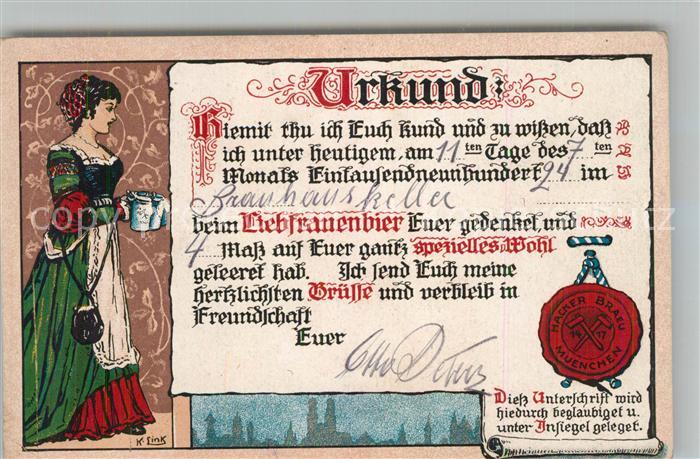 Urkund:
Hiemit thu ich Euch kund und zu wißen, daß
ich unter heutigem, am 11ten Tage des 7ten
Monats Eintausendneunhundert 24 im
Brauhauskeller
beim Liebfrauenbier Euer gedenket, und
4 Maß auf Euer gantz spezielles Wohl
geleeret hab. Ich send Euch meine
hertzlichsten Grüsse und verbleib in
Freundschaft
Euer
Otto
HACKER BRAEU
14 17
MUENCHEN
Dieß Unterschrift wird
hiedurch beglaubiget u.
unter Insiegel geleget.
K. Sink